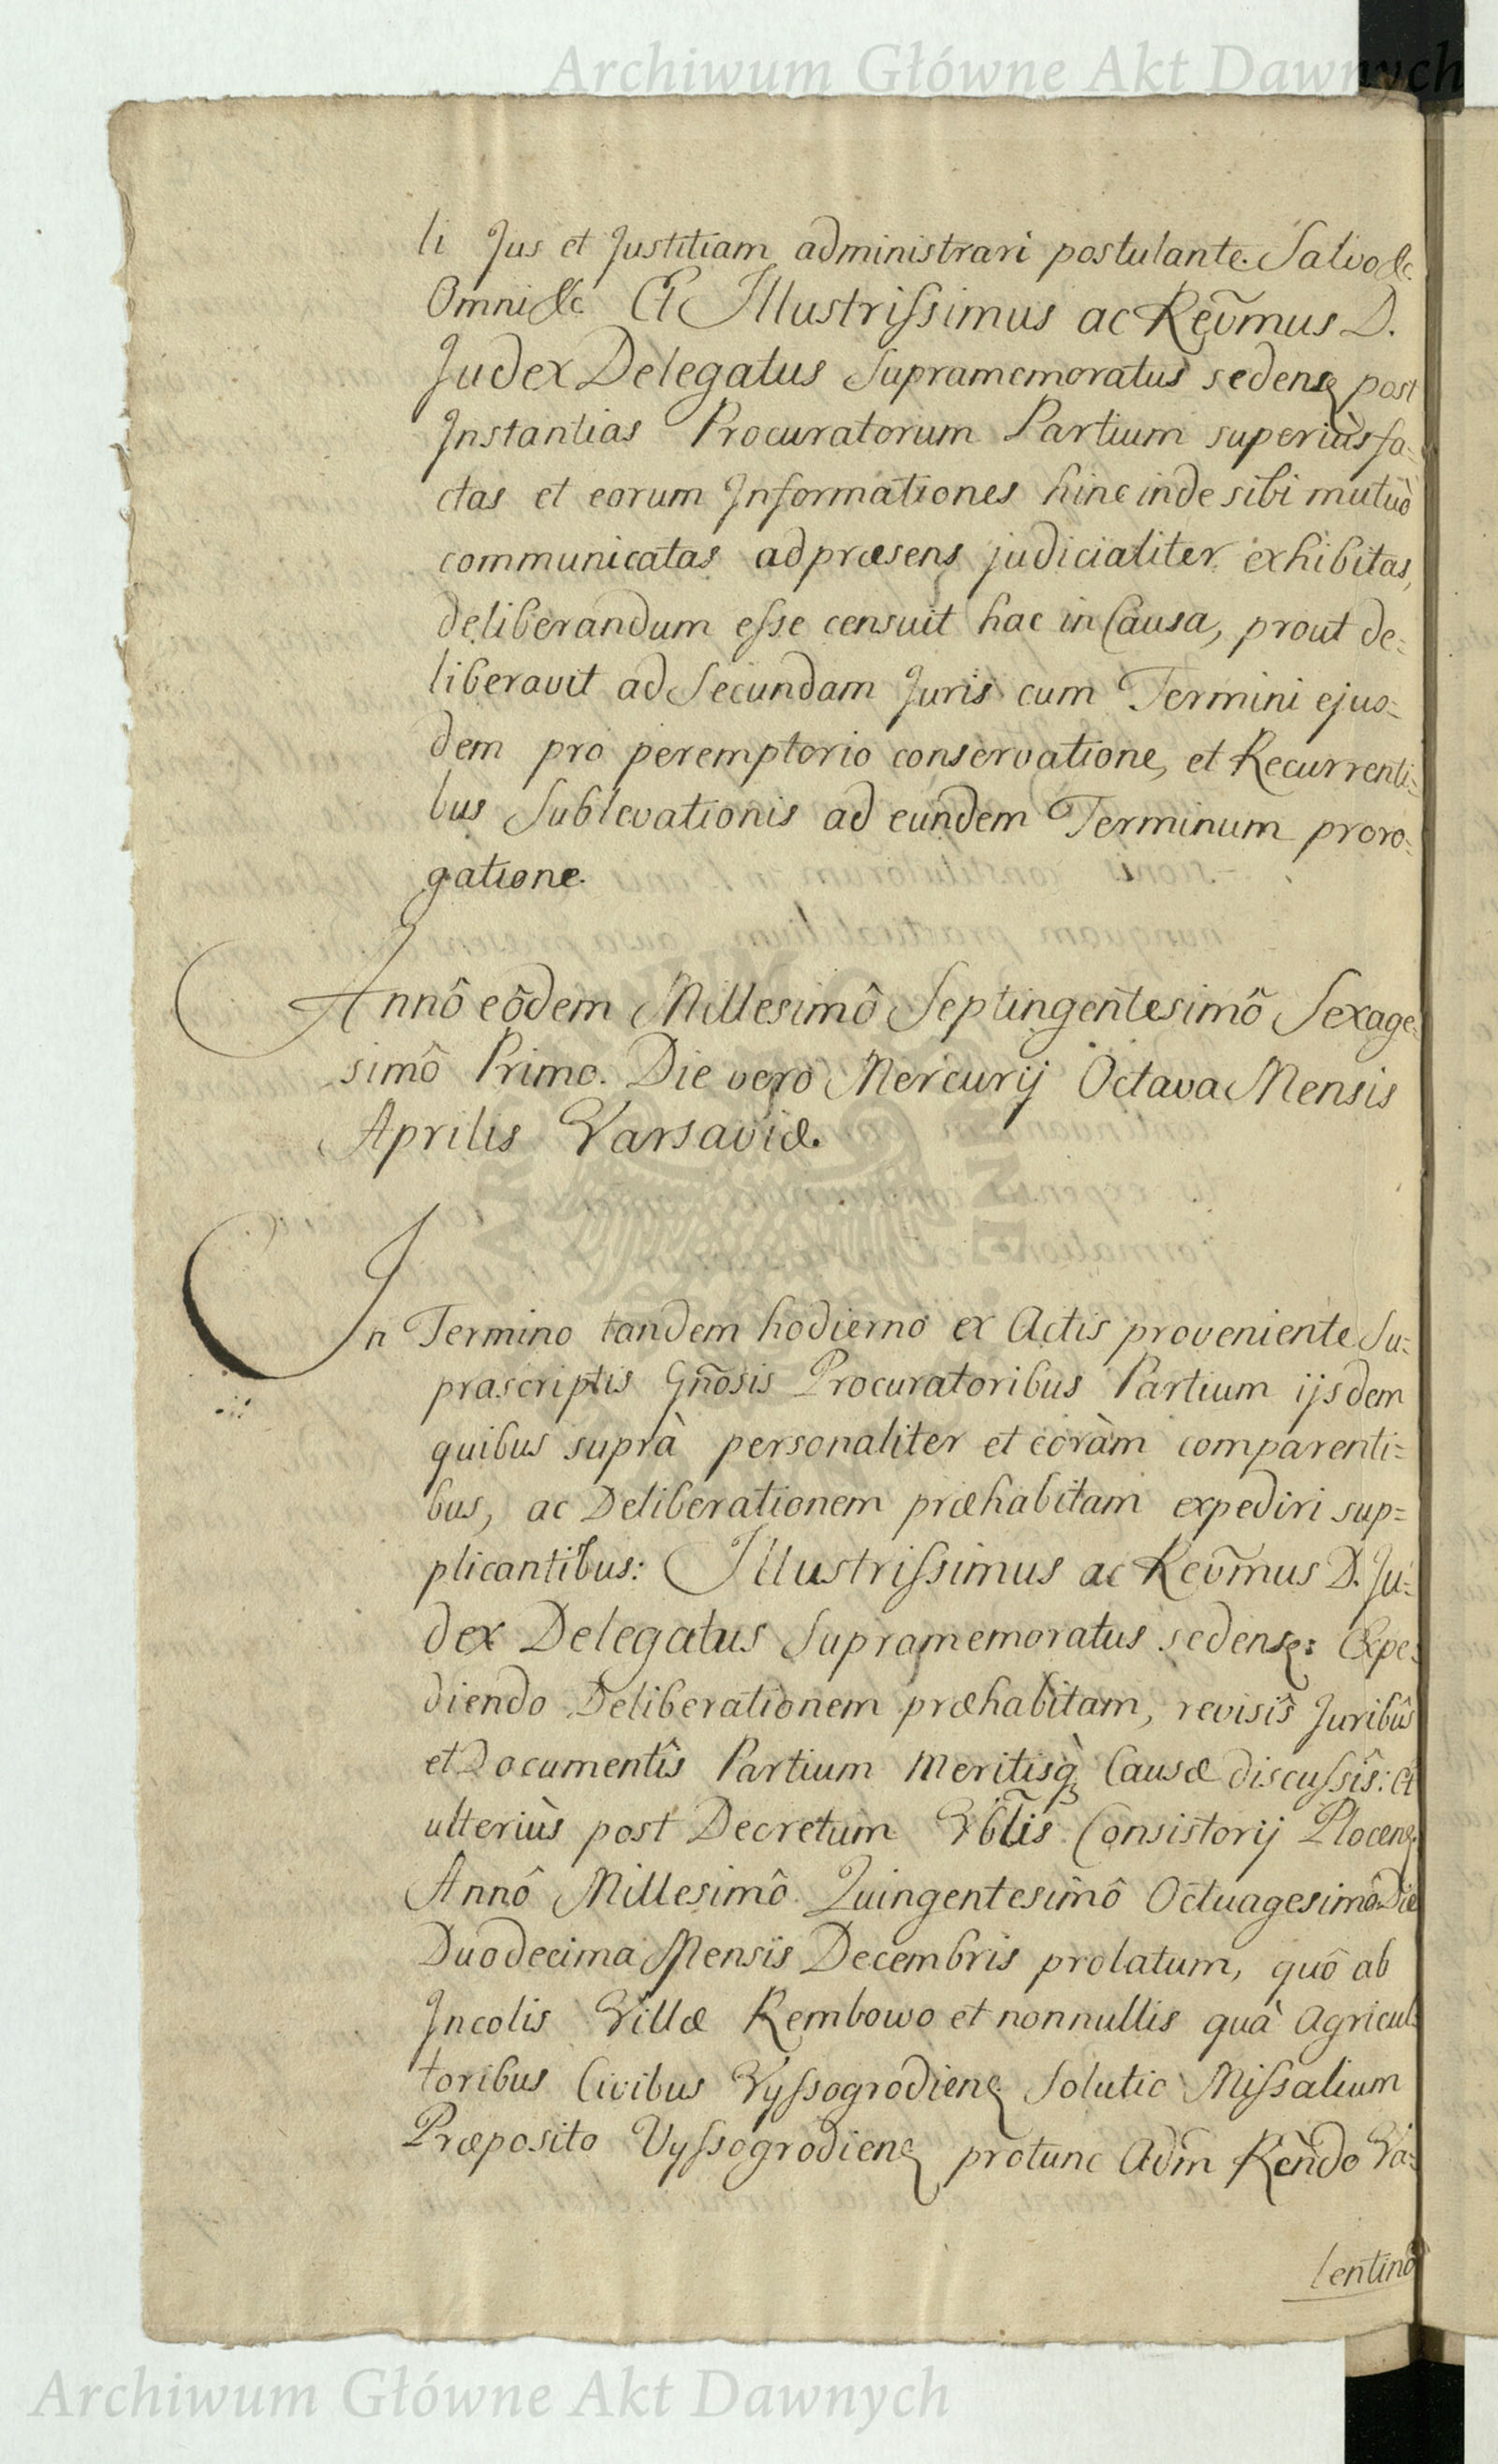 Archiwum Główne Akt Dawnych
li Jus et Justitiam administrari postulante. Salvo &c.
Omni &c. Et Illustrissimus ac Reṽmus D.
Judex Delegatus Supramemoratus sedensq post
Instantias Procuratorum Partium superiùs fa=
ctas et eorum Informationes hinc inde sibi mutuò
communicatas ad præsens judicialiter exhibitas,
deliberandum esse censuit hac in Causa, prout de=
liberavit ad Secundam Juris cum Termini ejus=
dem pro peremptorio conservatione, et Recurrenti=
bus Sublevationis ad eundem Terminum proro=
gatione.
Annô eôdem Millesimô Septingentesimô Sexage=
simô Primo. Die vero Mercurij Octava Mensis
Aprilis Varsaviæ.
In Termino tandem hodierno ex Actis proveniente Su=
prascriptis Gñosis Procuratoribus Partium ijsdem
quibus suprà personaliter et coràm comparenti=
bus, ac Deliberationem præhabitam expediri sup=
plicantibus: Illustrissimus ac Reṽmus D. Ju=
dex Delegatus Supramemoratus sedensq: Expe=
diendo Deliberationem præhabitam, revisîs Juribûs
et Documentîs Partium Meritisq̀ Causæ discussîs: Et
ulteriùs post Decretum Vblis Consistorij Plocensq
Annô Millesimô Quingentesimô Octuagesimô Die
Duodecima Mensis Decembris prolatum, quô ab
Incolis Villæ Rembowo et nonnullis quà Agricul=
toribus Civibus Vyssogrodiensq Solutio Missalium
Præposito Vyssogrodiensq protunc Adm̃ Rẽndo Va=
lentinô
Archiwum Główne Akt Dawnych